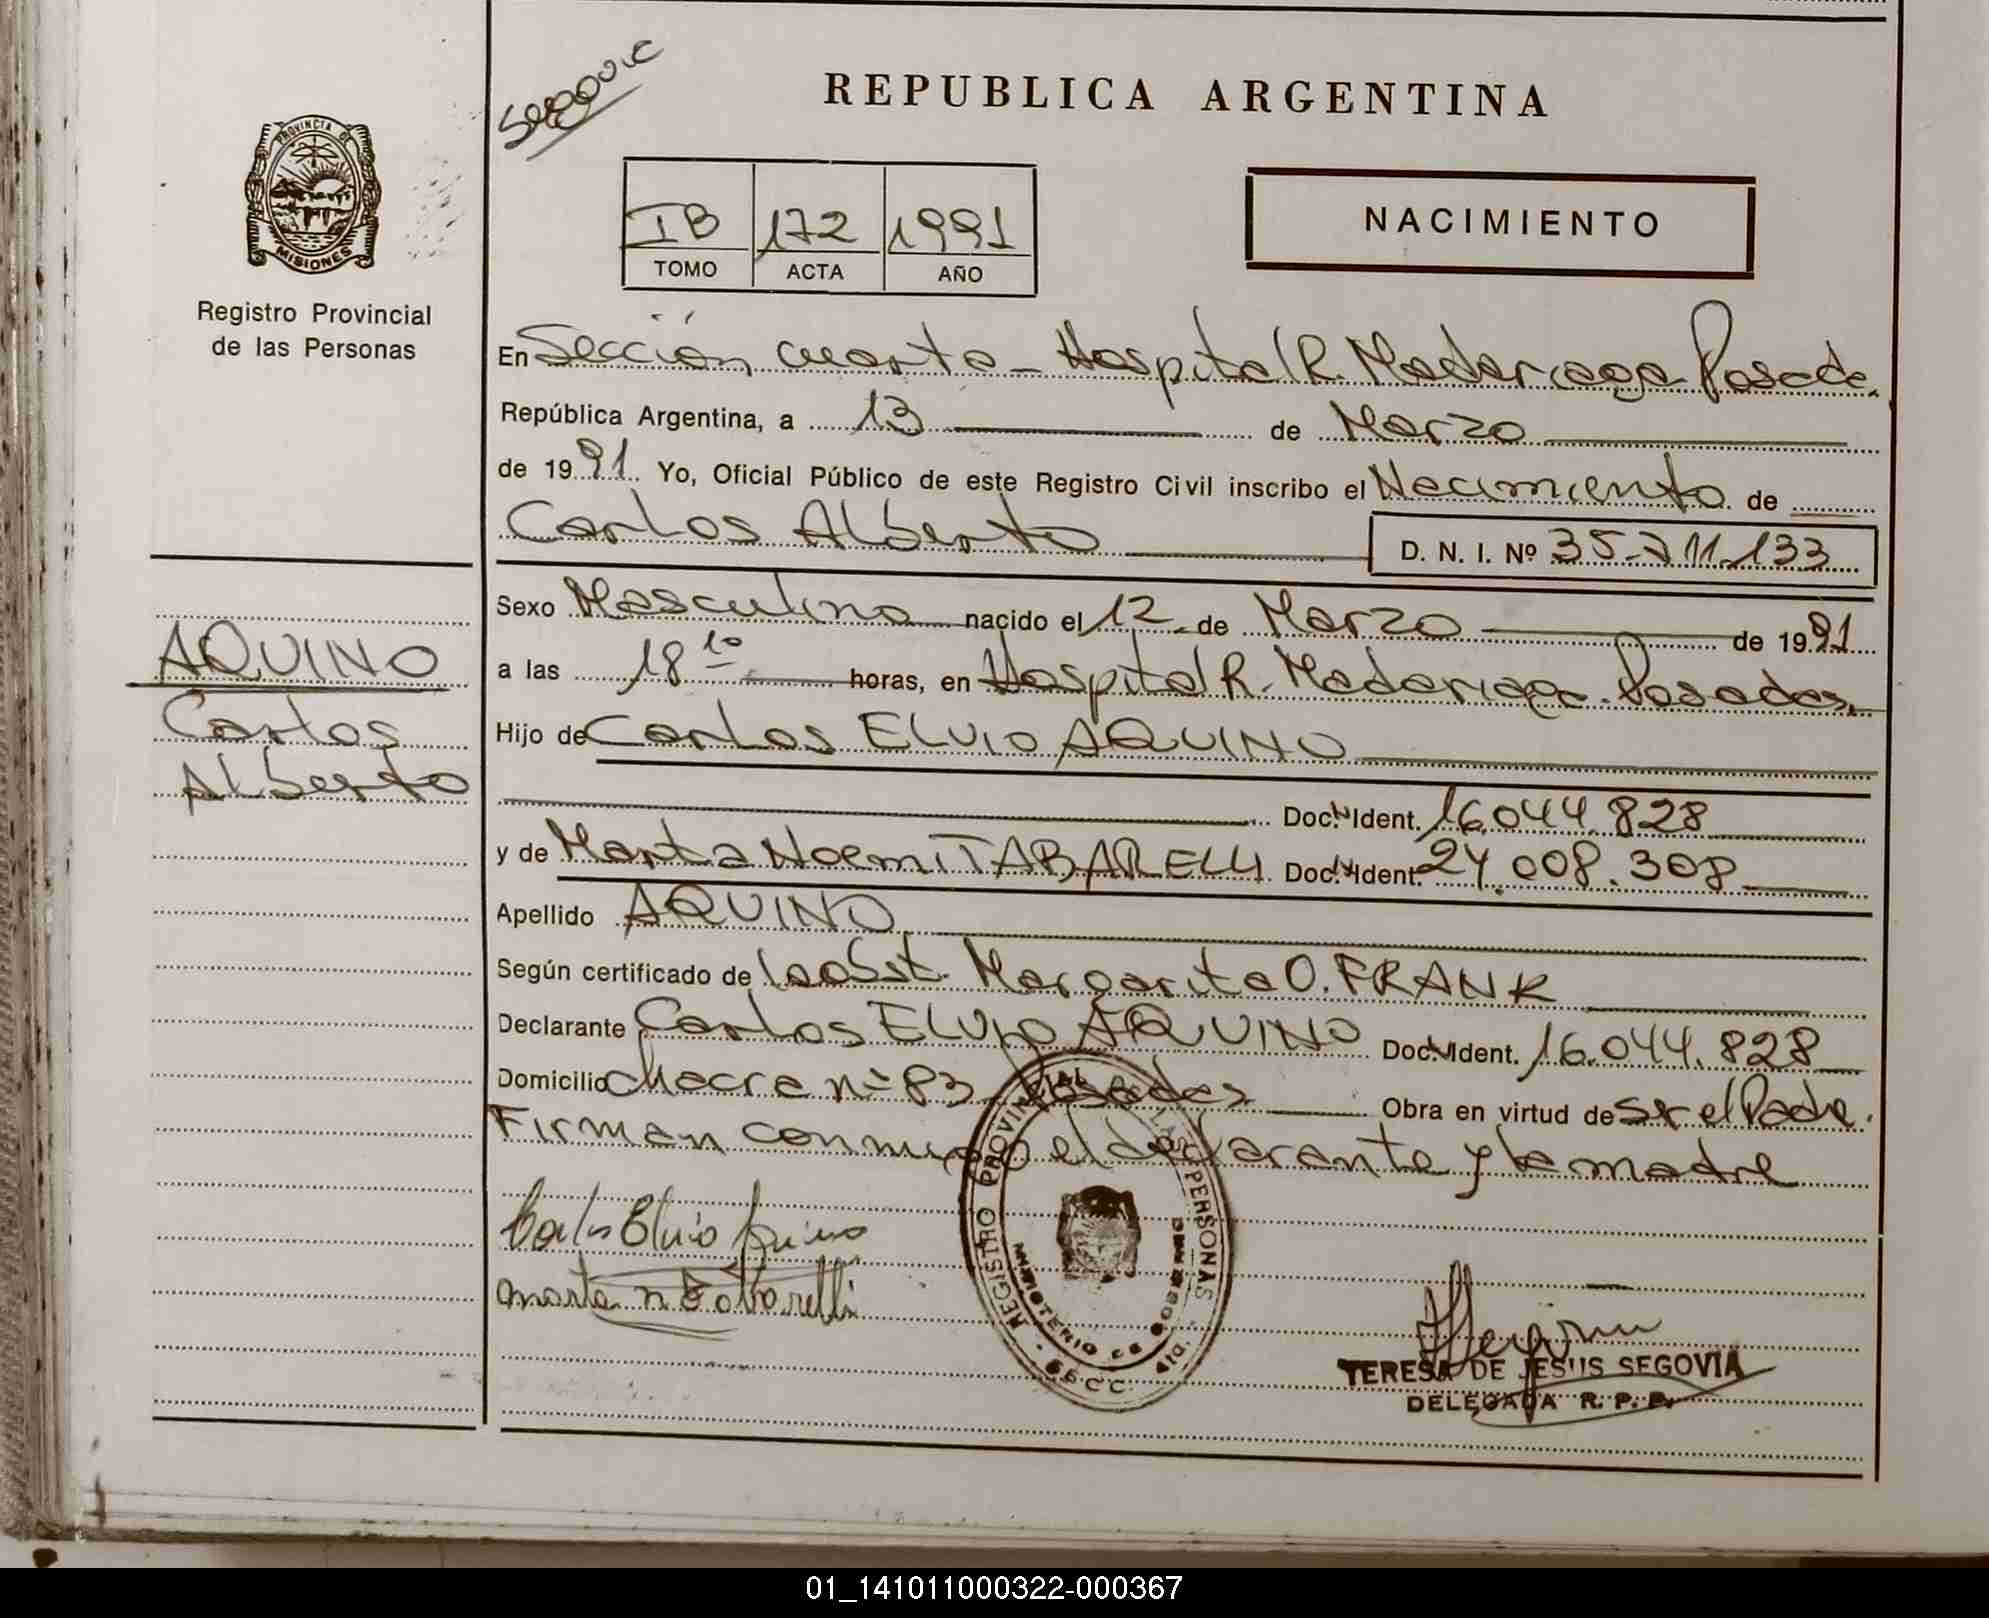 Segovia
REPUBLICA ARGENTINA
PROVINCIA DE
MISIONES
Registro Provincial
de las Personas
IB 172 1991
TOMO ACTA AÑO
NACIMIENTO
En Sección cuarta - Hospital R. Madariaga Posadas
República Argentina, a 13 de Marzo
de 1991 Yo, Oficial Público de este Registro Civil inscribo el Nacimiento de
Carlos Alberto D. N. I. Nº 35.711.133
Sexo Masculino nacido el 12 de Marzo de 1991
a las 18 10 horas, en Hospital R. Madariaga. Posadas
Hijo de Carlos ELVIO AQUINO
Doc. Ident. 16.044.828
y de Marta Noemi TABARELLI Doc. Ident. 24.008.308
Apellido AQUINO
Según certificado de la obst. Margarita O. FRANK
Declarante Carlos ELVIO AQUINO Doc. Ident. 16.044.828
Domicilio chacra nº 83 Posadas Obra en virtud de ser el Padre.
Firman conmigo el declarante y la madre
AQUINO
Carlos
Alberto
Carlos Elvio Aquino
Marta n Tabarelli
REGISTRO PROVINCIAL PERSONAS
MINISTERIO DE GOBIERNO
SECC. 4ta.
TERESA DE JESUS SEGOVIA
DELEGADA R. P. P.
01_141011000322-000367